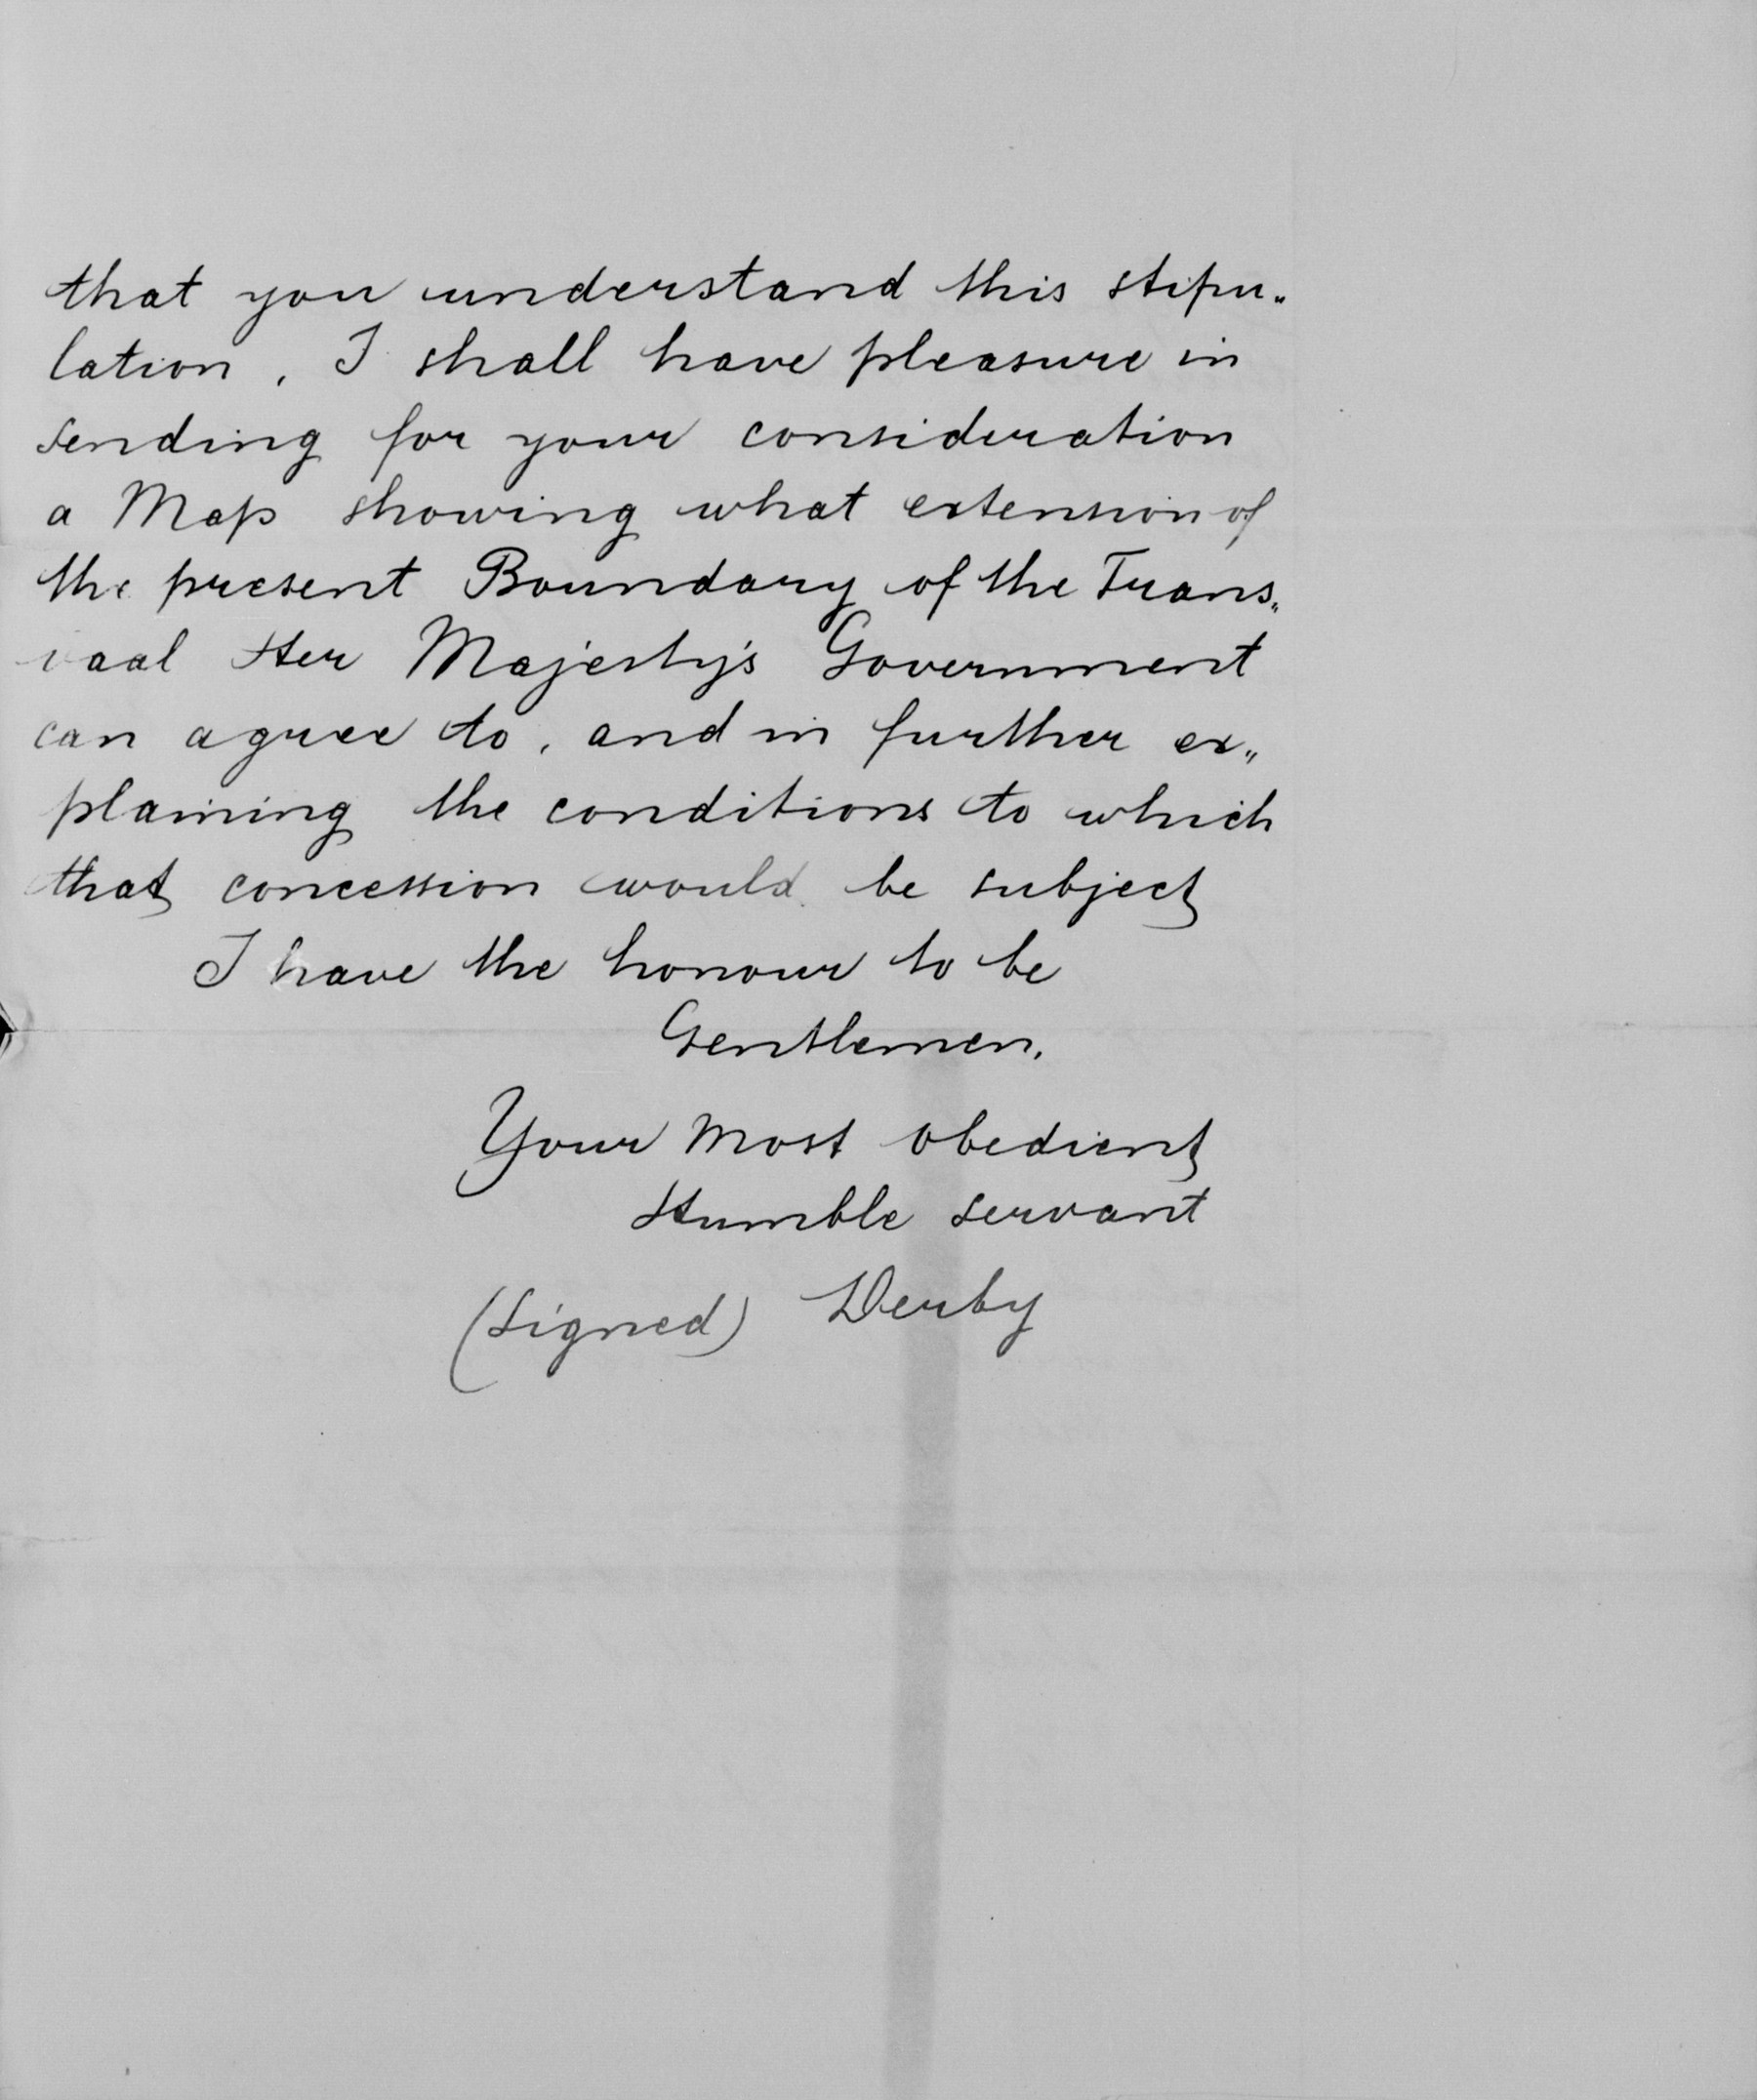 that you understand this stipu„
lation, I shall have pleasure in
sending for your consideration
a Map showing what extension of
the present Boundary of the Trans„
vaal Her Majesty's Government
can agree to, and in further ex„
plaining the conditions to which
that concession would be subject
I have the honour to be
Gentlemen,
Your most obedient
Humble servant
(Signed) Derby